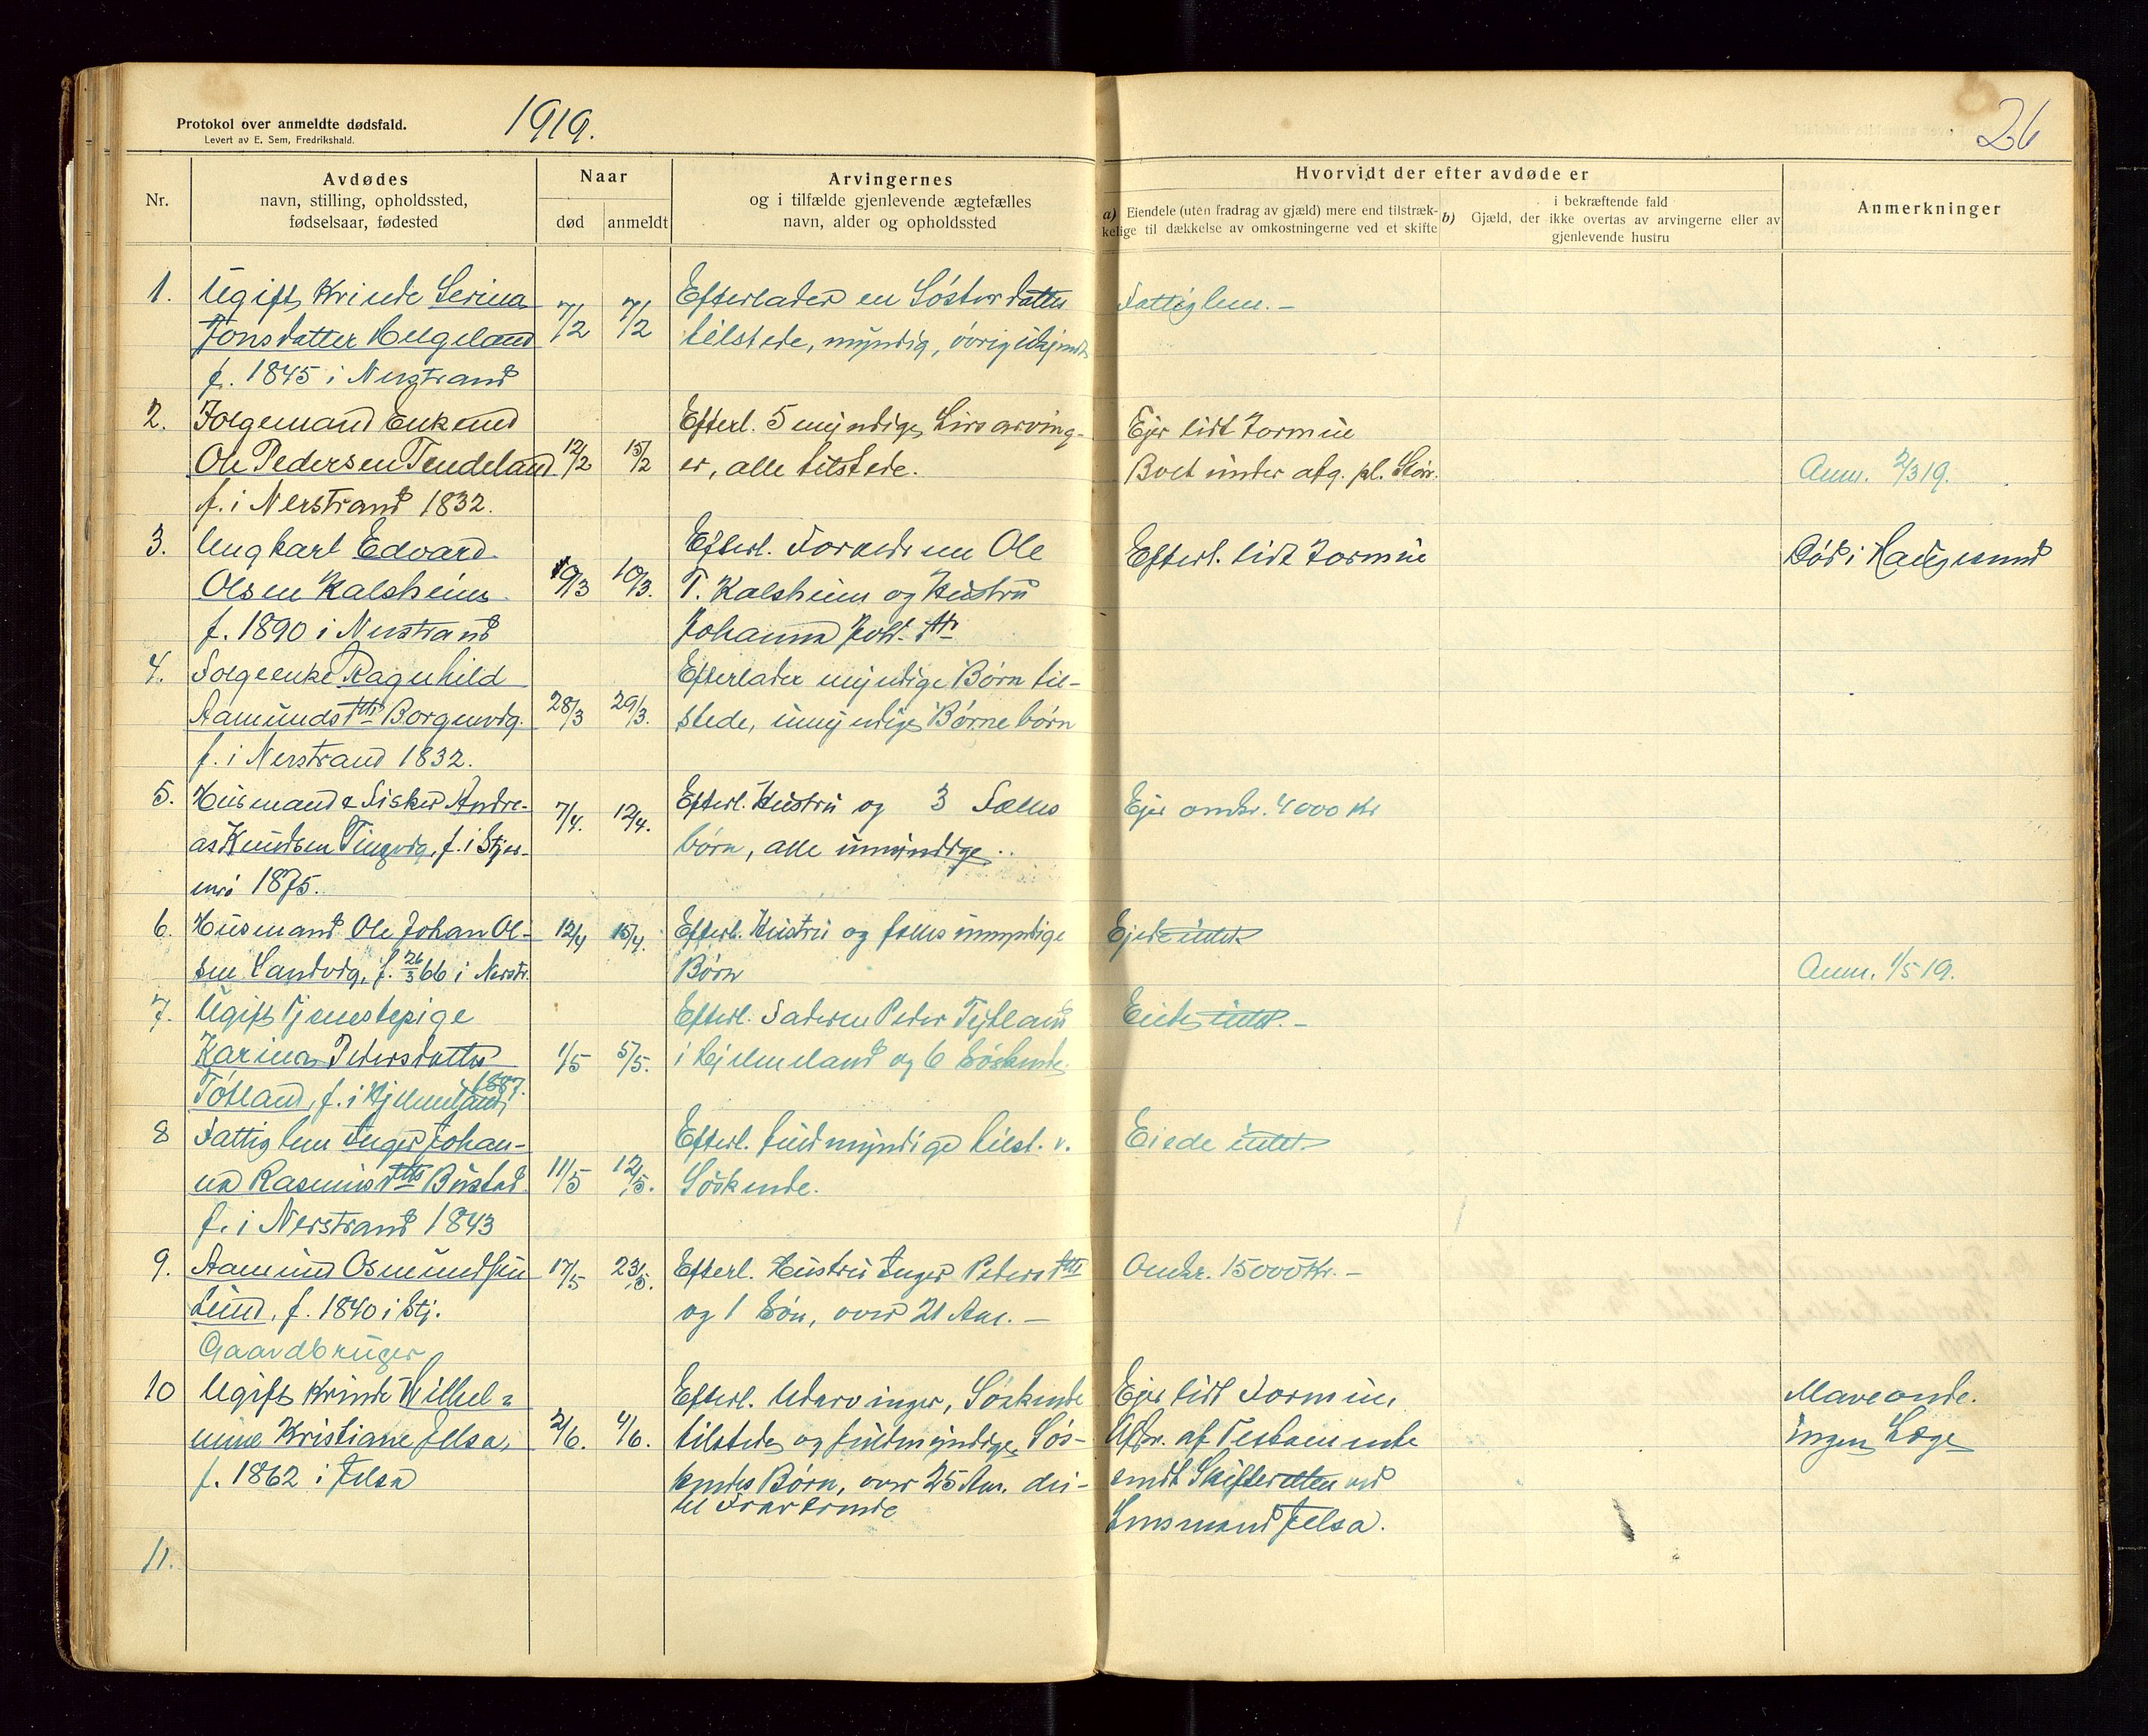 Protokol over anmeldte dødsfald.
Levert av E. Sem, Fredrikshald.
1919.
26
Nr.
Avdødes
navn, stilling, opholdssted,
fødselsaar, fødested
Naar
død
anmeldt
Arvingernes
og i tilfælde gjenlevende ægtefælles
navn, alder og opholdssted
Hvorvidt der efter avdøde er
a) Eiendele (uten fradrag av gjæld) mere end tilstræk-
kelige til dækkelse av omkostningerne ved et skifte
i bekræftende fald
b) Gjæld, der ikke overtas av arvingerne eller av
gjenlevende hustru
Anmerkninger
1.
Ugift Kvinde Serina
Jonsdatter Helgeland
f. 1845 i Nerstrand
7/2
7/2
Efterlader en Søsterdatter
tilstede, myndig, øvrig ukjendt
Fattiglem. –
2.
Folgemand Enkemd
Ole Pedersen Tendeland
f. i Nerstrand 1832.
12/2
15/2
Efterl. 5 myndige Livsarving-
er, alle tilstede.
Ejer lidt Formue
Boet under afg. pl. Størr.
Anm. 2/3 19.
3.
Ungkarl Edvard
Olsen Kalsheim
f. 1890 i Nerstrand
9/3
10/3.
Efterl. Forældrene Ole
T. Kalsheim og Hustru
Johanna Joh. dtr
Efterl. lidt Formue
Død i Haugesund
4.
Folgeenke Ragnhild
Aamundsdtr Borgevig.
f. i Nerstrand 1832.
28/3
29/3.
Efterlader myndige Børn til-
stede, umyndige Børnebørn
5.
Husmand & Fisker Andre-
as Knudsen Tingvig, f. i Stjer-
nerø 1875.
7/4.
12/4.
Efterl. Hustru og 3 Fælles
børn, alle umyndige..
Ejer omkr. 4000 Kr
6.
Husmand Ole Johan Ol-
sen Sandvig, f. 26/3 66 i Nerstr.
12/4
15/4.
Efterl. Hustru og fælles umyndige
Børn
Ejede intet
Anm. 1/5 19.
7.
Ugift Tjenestepige
Karina Pedersdatter
Tøtland, f. i Hjelmeland, 1887.
1/5
5/5.
Efterl. Faderen Peder Tytland
i Hjelmeland og 6 Søskende.
Eiede intet. –
8
Fattiglem Inger Johan-
na Rasmusdtr Bustad
f. i Nerstrand 1843
11/5
12/5.
Efterl. fuldmyndige tilst. v.
Søskende.
Eiede intet
9.
Aamund Osmundsen
Lund, f. 1840 i Stj.
Gaardbruger
17/5
23/5.
Efterl. Hustru Inger Pedersdtr
og 1 Søn, over 21 Aar. –
Omkr. 15000 Kr. –
10
Ugift Kvinde Wilhel-
mine Kristiane Jelsa,
f. 1862 i Jelsa
2/6.
4/6.
Efterl. Udarvinger, Søskende
tilstede og fuldmyndige Søs-
kendes Børn, over 25 Aar.
Ejer lidt Formue,
Afskr. af Testamente
sendt Skifteretten ved
Lensmand Jelsa.
Maveonde.
Ingen Læge
11.